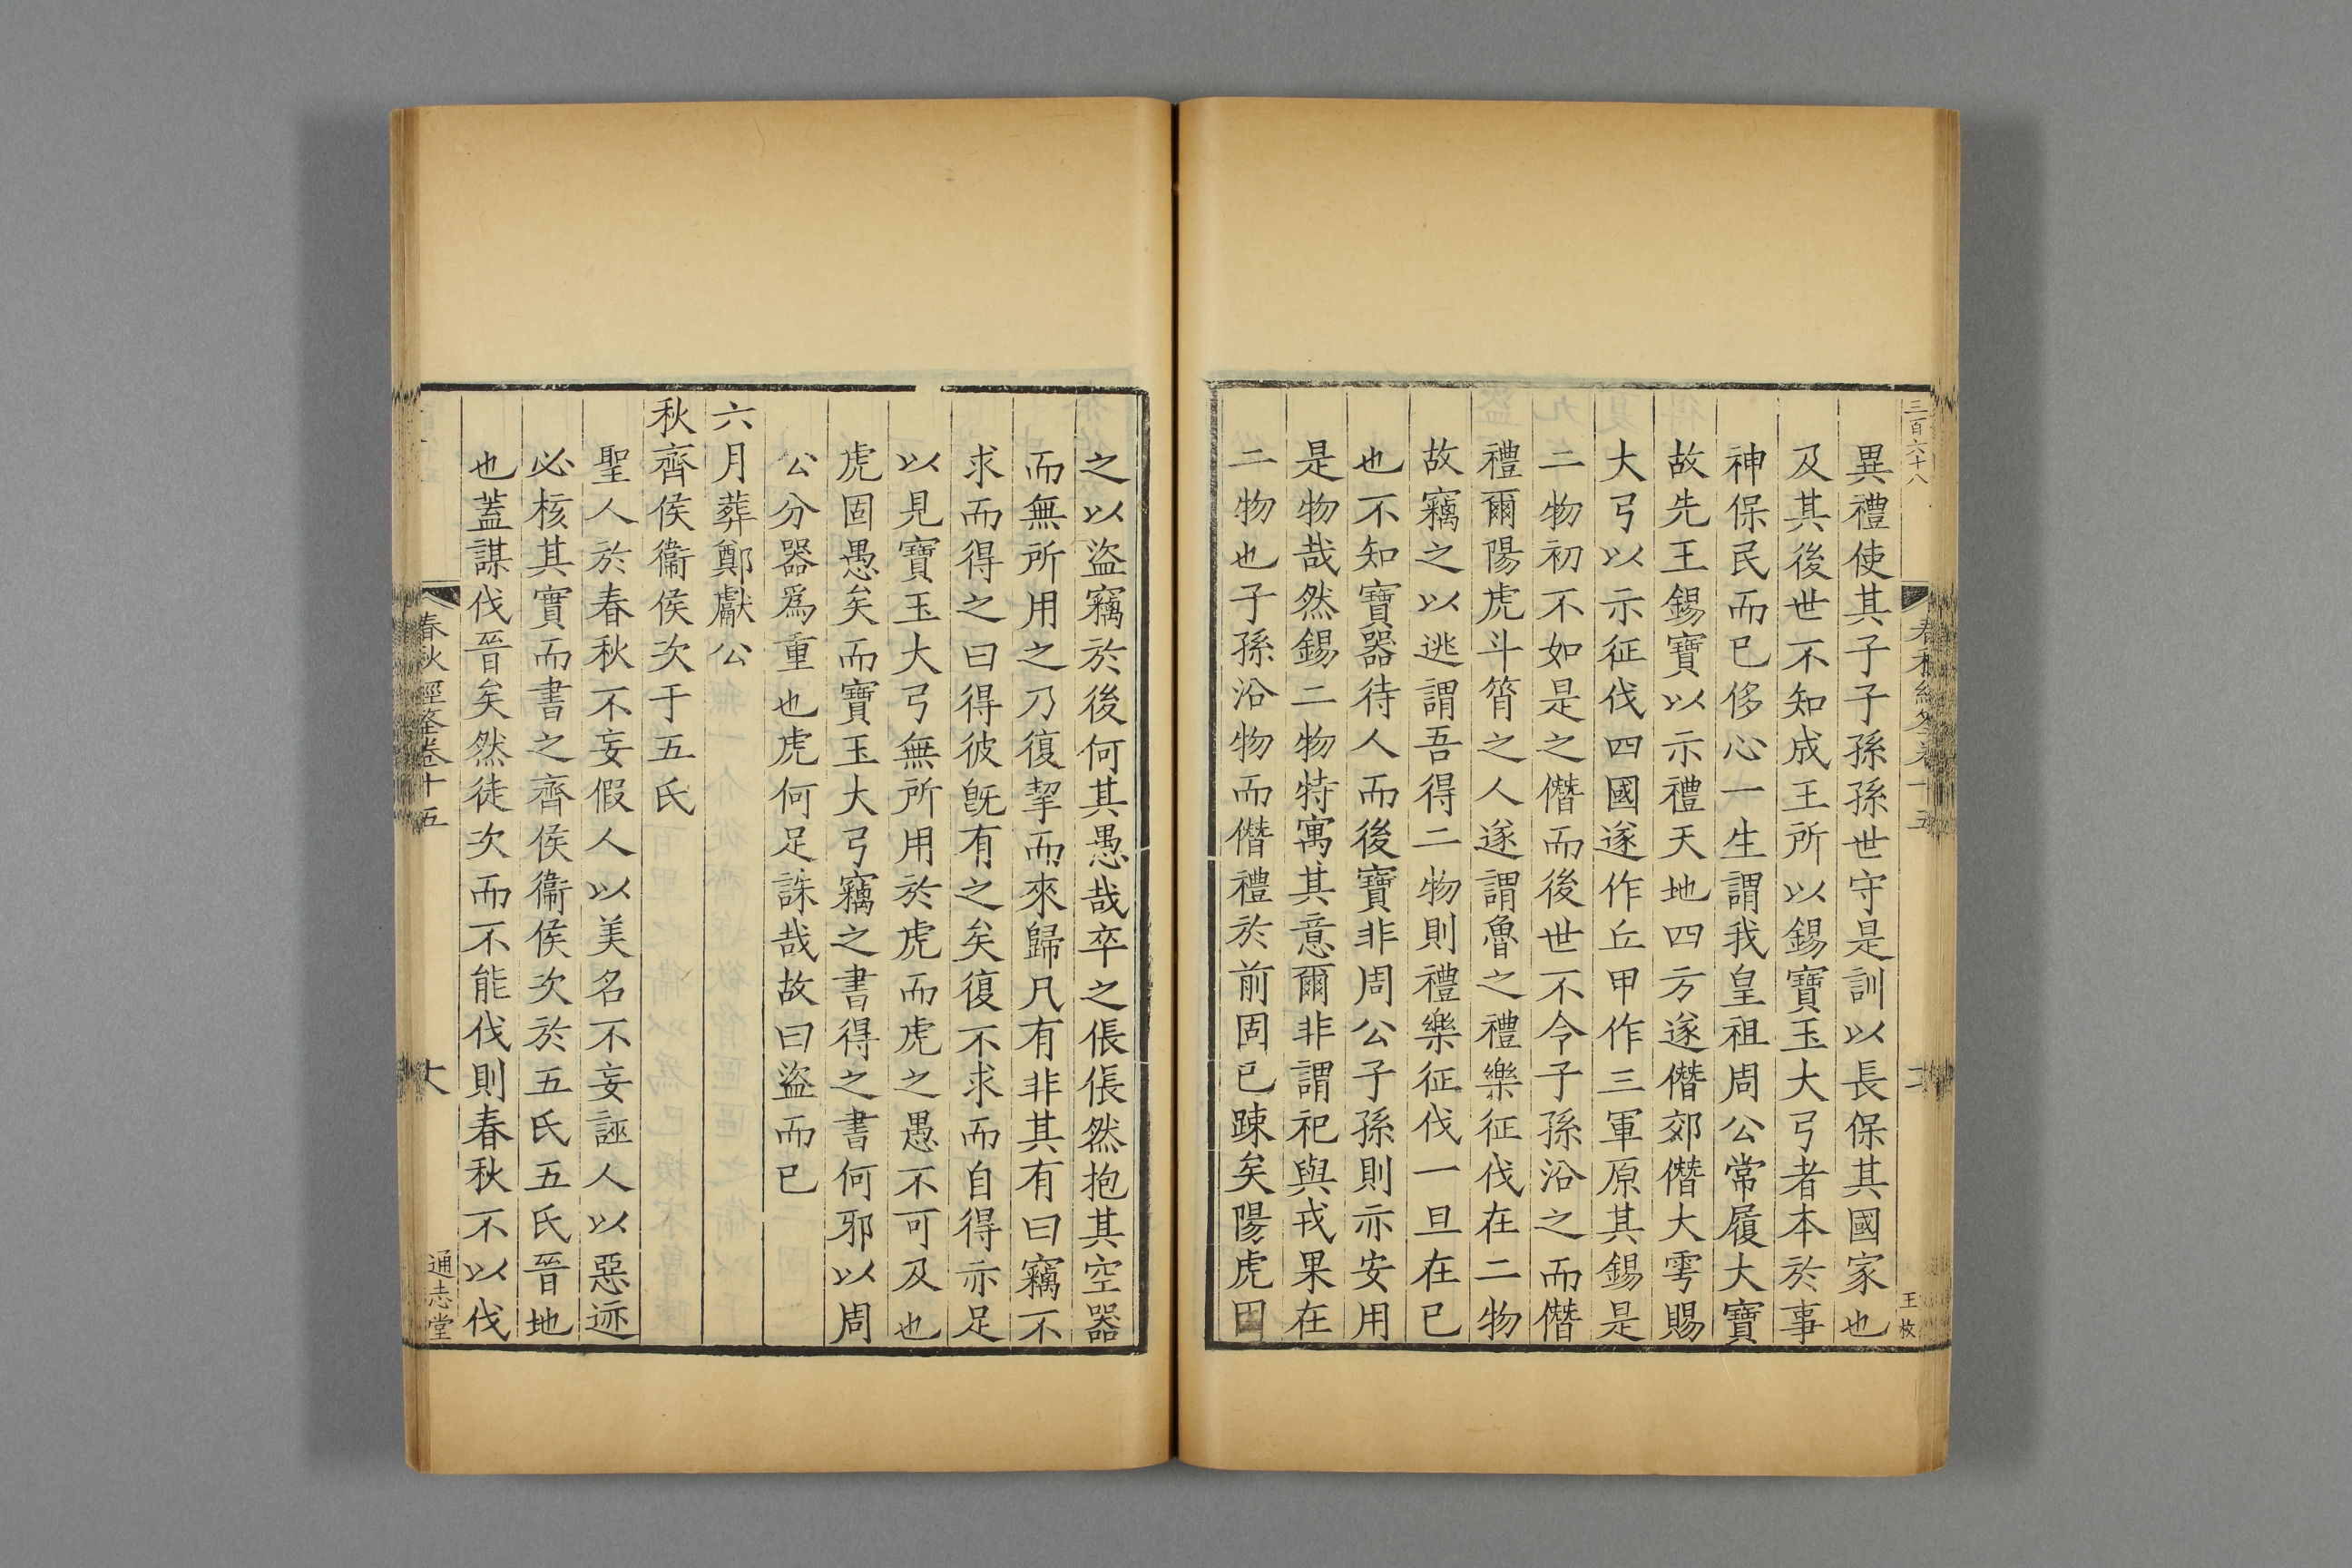 三百六十八
異禮使其子子孫孫世守是訓以長保其國家也
及其後世不知成王所以錫寶玉大弓者本於事
神保民而已侈心一生謂我皇祖周公常履大寶
故先王錫寶以示禮天地四方遂僭郊僭大雩賜
大弓以示征伐四國遂作丘甲作三軍原其錫是
二物初不如是之僭而後世不令子孫沿之而僭
禮爾陽虎斗筲之人遂謂魯之禮樂征伐在二物
故竊之以逃謂吾得二物則禮樂征伐一旦在已
也不知寶器待人而後寶非周公子孫則亦安用
是物哉然錫二物特寓其意爾非謂祀與戎果在
二物也子孫沿物而僭禮於前固已踈矣陽虎因
王枚
之以盜竊於後何其愚哉卒之倀倀然抱其空器
而無所用之乃復挈而來歸凡有非其有曰竊不
求而得之曰得彼旣有之矣復不求而自得亦足
以見寶玉大弓無所用於虎而虎之愚不可及也
虎固愚矣而寶玉大弓竊之書得之書何邪以周
公分器爲重也虎何足誅哉故曰盜而已
六月葬鄭獻公
秋齊侯衞侯次于五氏
聖人於春秋不妄假人以美名不妄誣人以惡迹
必核其實而書之齊侯衞侯次於五氏五氏晉地
也蓋謀伐晉矣然徒次而不能伐則春秋不以伐
春秋經筌卷十五
通志堂